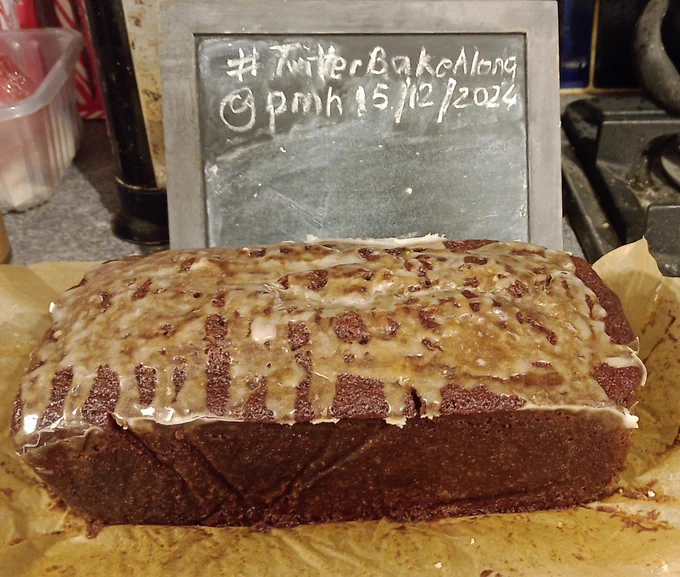 #TwitterBakeAlong
@pmh 15/12/2024